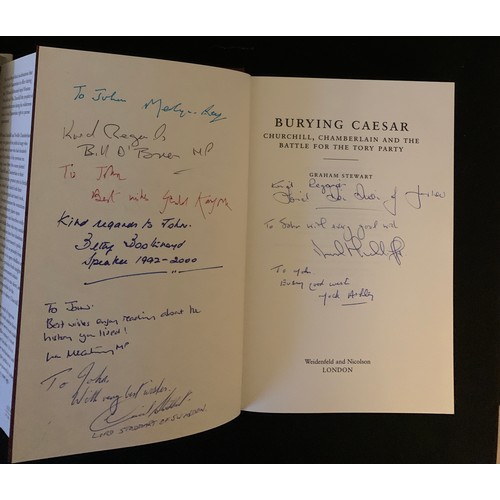 To John
Kind Regards
Bill O'Brien MP
To John
Best wishes Gerald Kaufman
Kind regards to John.
Betty Boothroyd
Speaker 1992-2000
To John.
Best wishes enjoy reading about the
history you lived!
MP
To John.
With very best wishes.
LORD STODDART OF SWINDON
BURYING CAESAR
CHURCHILL, CHAMBERLAIN AND THE
BATTLE FOR THE TORY PARTY
GRAHAM STEWART
Kind Regards
To John with every good wish
To John
Every good wish
Jack Ashley
Weidenfeld and Nicolson
LONDON